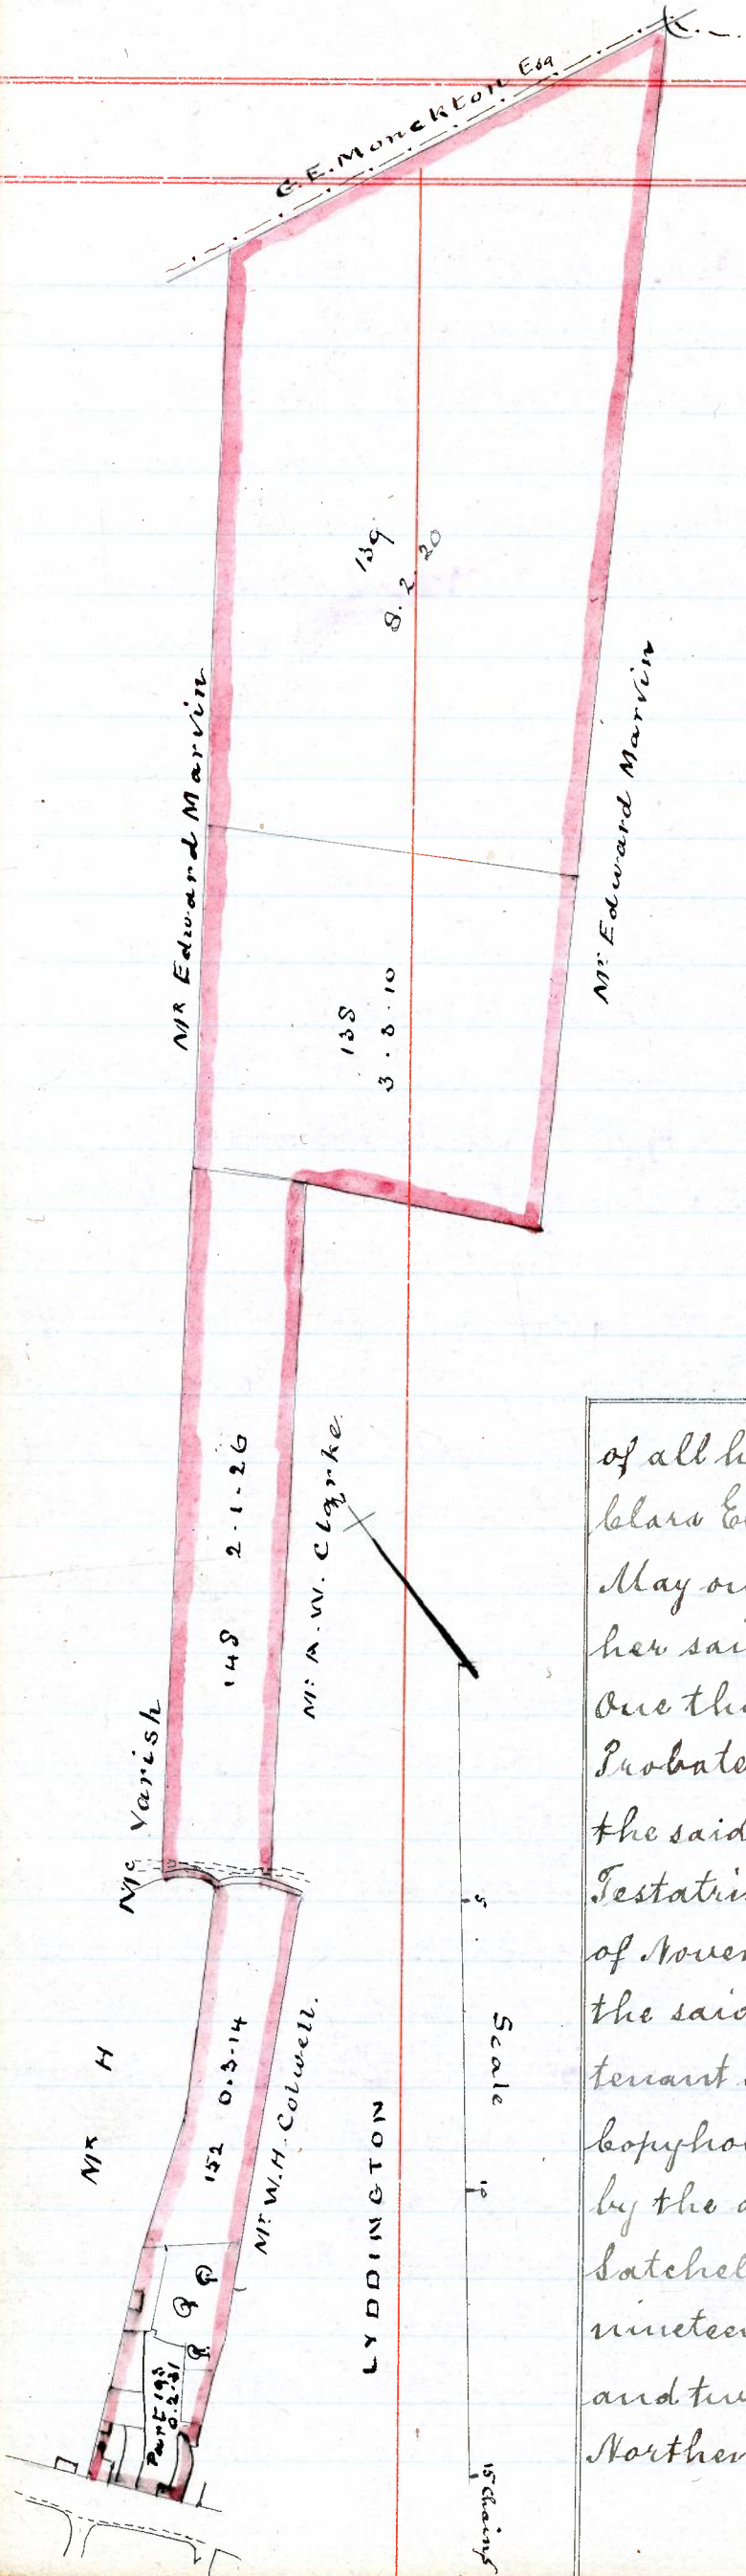 G. E. Monckton Esq
139
8. 2. 20
Mr Edward Marvin
Mr Edward Marvin
138
3 . 3 . 10
148 2-1-26
Mr A. W. Clarke
Mr H Varish
152 0-3-14
Mr W. H. Colwell.
Part 193
0.2.31
LYDDINGTON
Scale
5
10
15 Chains
of all h
Clara E
May on
her sai
One tho
Probate
the said
Testatri
of Novem
the said
tenant
Copyho
by the
Satchel
nineteen
and tw
Norther